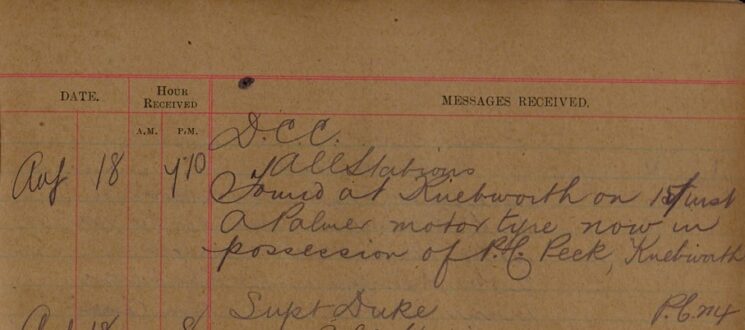 DATE. HOUR RECEIVED MESSAGES RECEIVED.
A.M. P.M.
D.C.C.
All Stations
Aug 18 7.10 Found at Knebworth on inst
a Palmer motor tyre now in
possession of P.C. Peck, Knebworth
Supt Duke